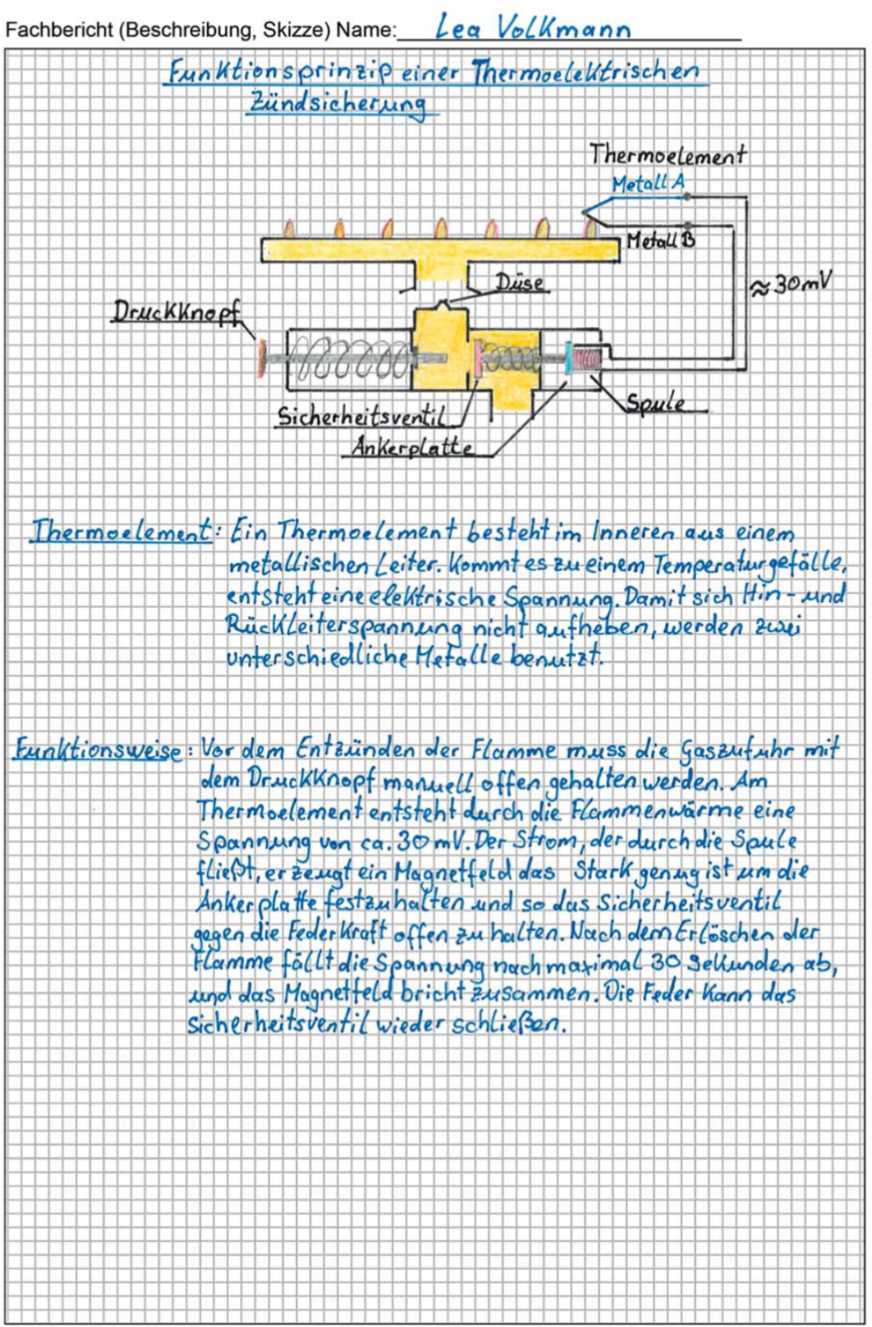 Fachbericht (Beschreibung, Skizze) Name: Lea Volkmann
Funktionsprinzip einer Thermoelektrischen
Zündsicherung
Thermoelement
Metall A
Metall B
Düse
≈30mV
Druckknopf
Sicherheitsventil
Spule
Ankerplatte
Thermoelement: Ein Thermoelement besteht im Inneren aus einem
metallischen Leiter. Kommt es zu einem Temperaturgefälle,
entsteht eine elektrische Spannung. Damit sich Hin- und
Rückleiterspannung nicht aufheben, werden zwei
unterschiedliche Metalle benutzt.
Funktionsweise: Vor dem Entzünden der Flamme muss die Gaszufuhr mit
dem Druckknopf manuell offen gehalten werden. Am
Thermoelement entsteht durch die Flammenwärme eine
Spannung von ca. 30 mV. Der Strom, der durch die Spule
fließt, erzeugt ein Magnetfeld das Stark genug ist um die
Ankerplatte festzuhalten und so das Sicherheitsventil
gegen die Federkraft offen zu halten. Nach dem Erlöschen der
Flamme fällt die Spannung nach maximal 30 Sekunden ab,
und das Magnetfeld bricht zusammen. Die Feder kann das
Sicherheitsventil wieder schließen.